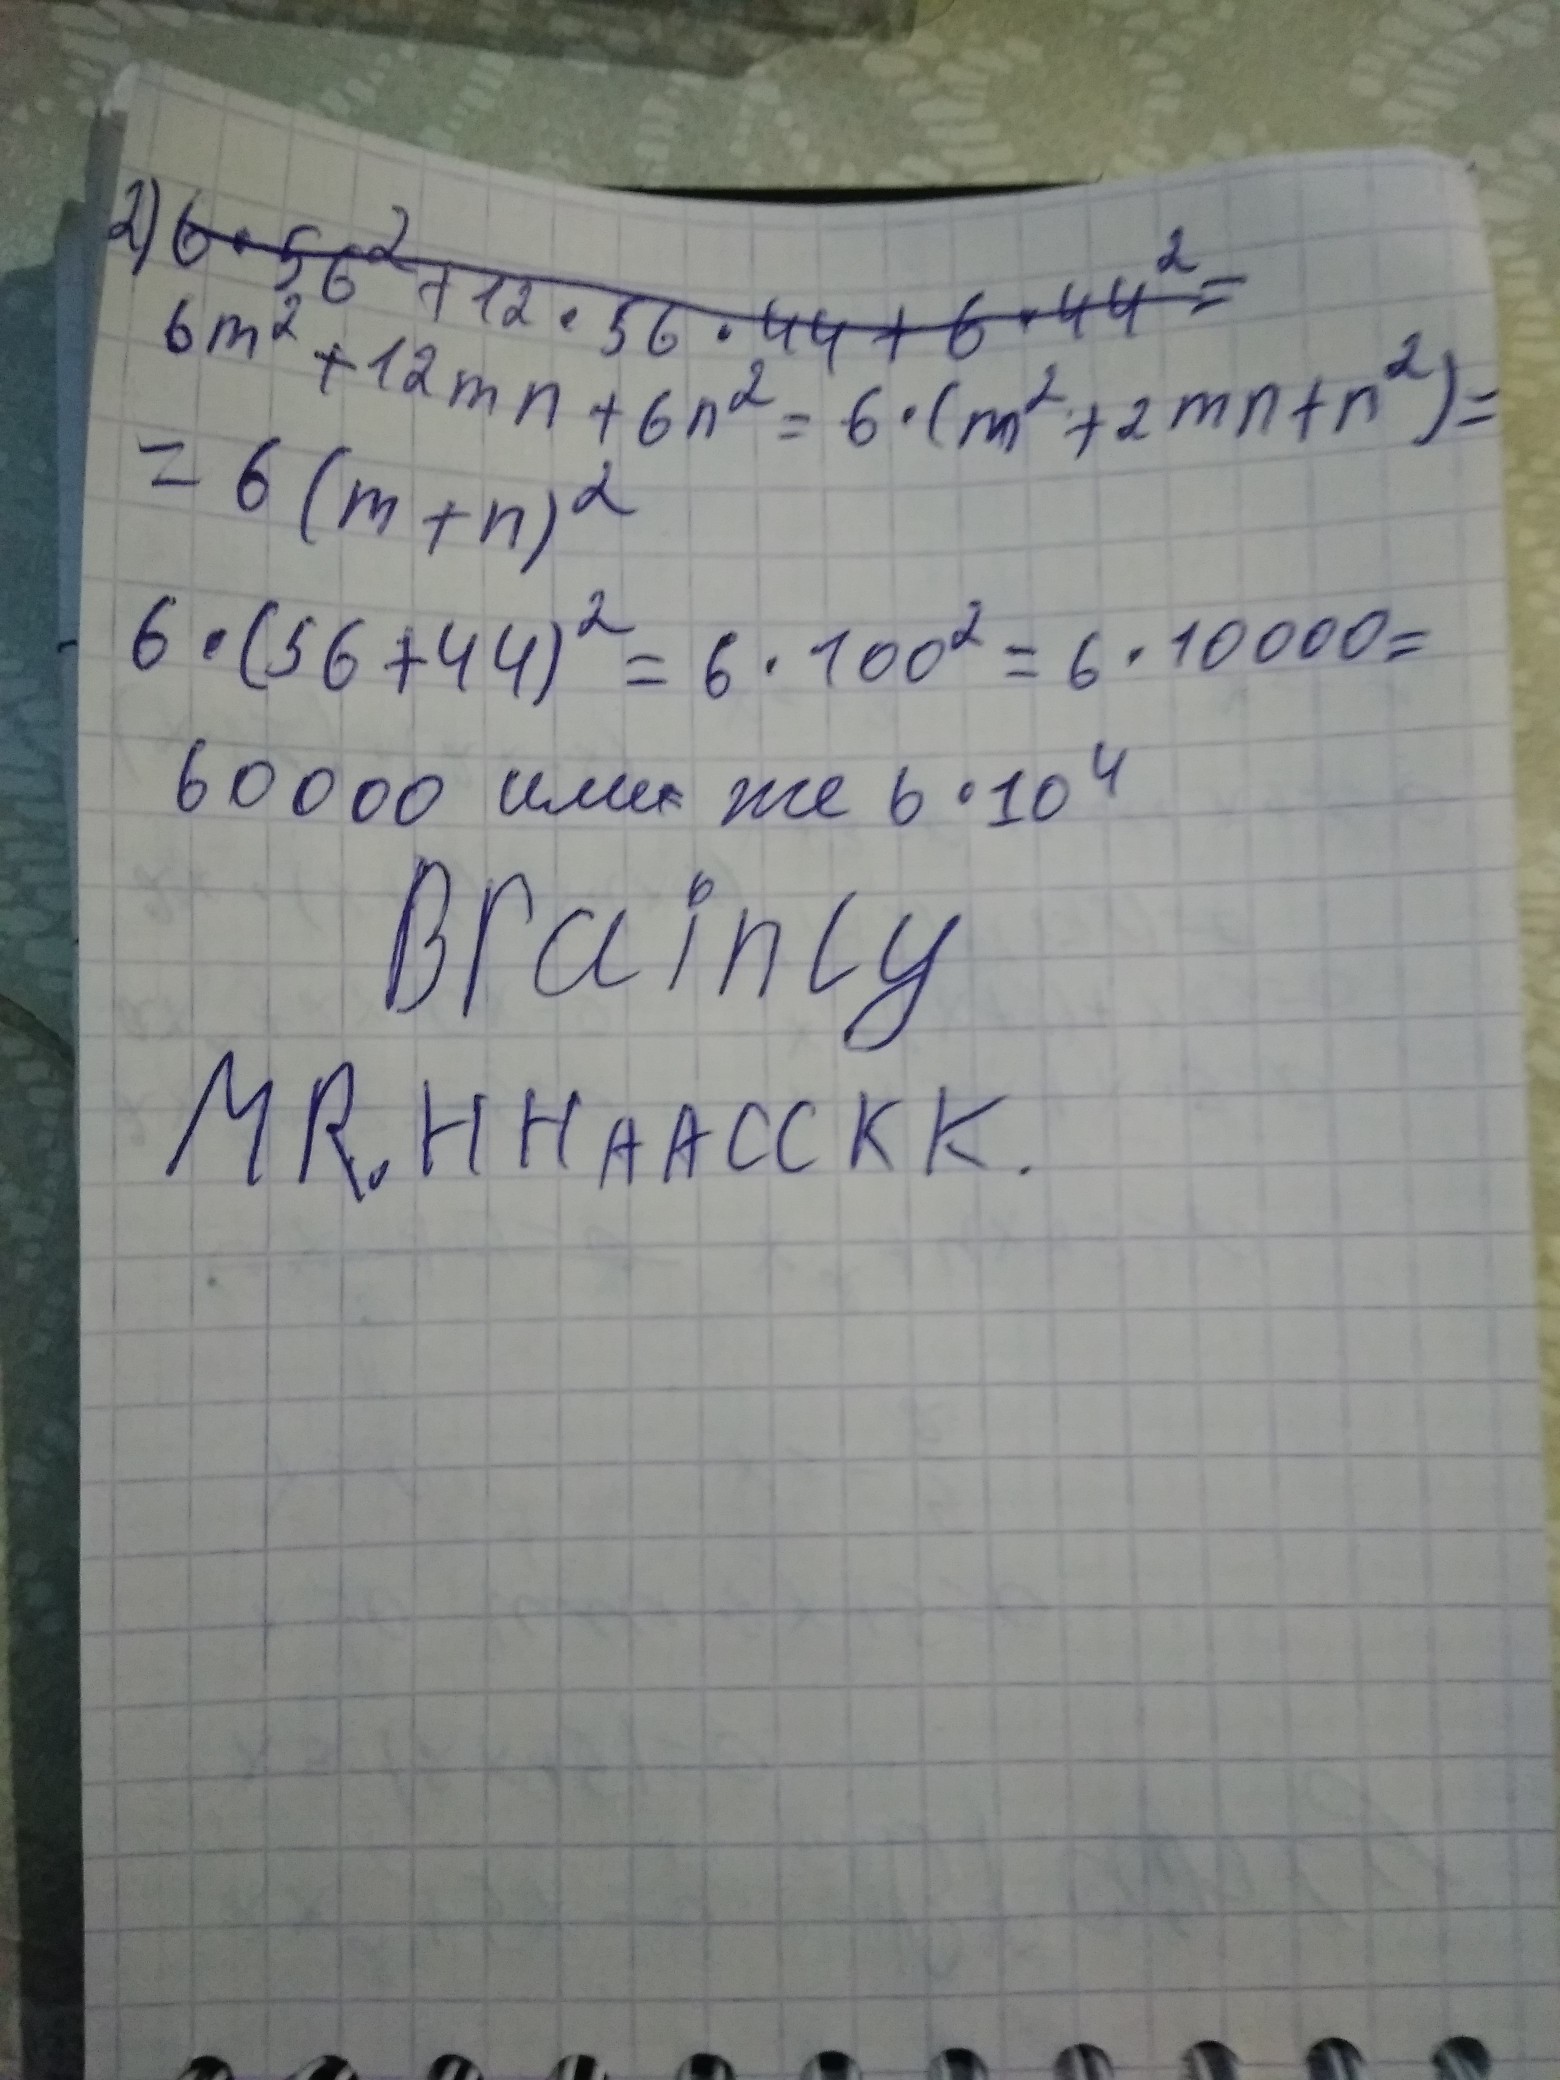 2) 6 • 56² + 12 • 56 • 44 + 6 • 44² =
6m² + 12mn + 6n² = 6 • (m² + 2mn + n²) =
= 6 (m + n)²
6 • (56 + 44)² = 6 • 100² = 6 • 10000 =
60000 или же 6 • 10⁴
Brainly
MR.HHAACCKK.